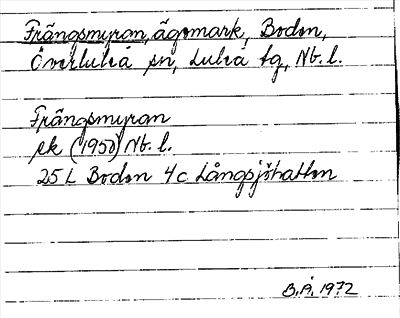 Frängsmyran, ägomark, Boden,
Överluleå sn, Luleå tg, Nb. l.
Frängsmyran
ek (1950) Nb. l.
25 L Boden 4c Långsjöhatten
B.Å. 1972